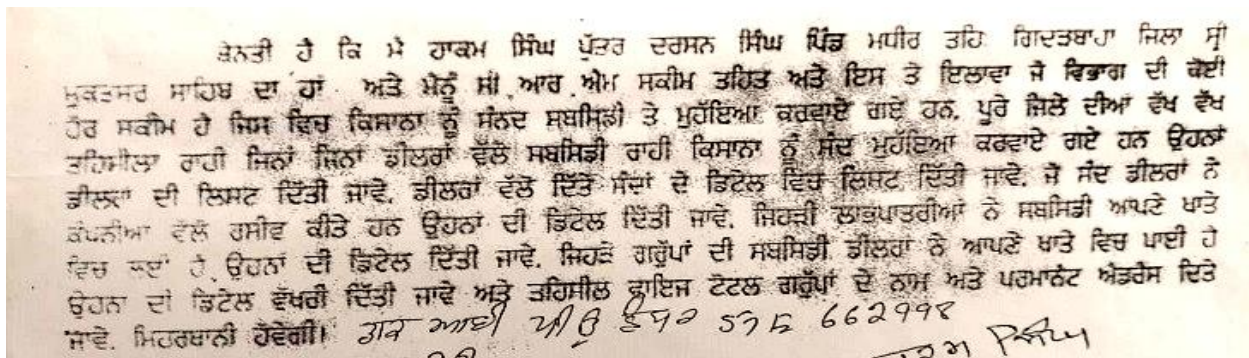 ਬੇਨਤੀ ਹੈ ਕਿ ਮੈ ਹਾਕਮ ਸਿੰਘ ਪੁੱਤਰ ਦਰਸਨ ਸਿੰਘ ਪਿੰਡ ਮਧੀਰ ਤਹਿ ਗਿਦੜਬਾਹਾ ਜਿਲਾ ਸ੍ਰੀ
ਮੁਕਤਸਰ ਸਾਹਿਬ ਦਾ ਹਾਂ ਅਤੇ ਮੈਨੂੰ ਸੀ.ਆਰ.ਐਮ ਸਕੀਮ ਤਹਿਤ ਅਤੇ ਇਸ ਤੇ ਇਲਾਵਾ ਜੋ ਵਿਭਾਗ ਦੀ ਕੋਈ
ਹੋਰ ਸਕੀਮ ਹੈ ਜਿਸ ਵਿਚ ਕਿਸਾਨਾ ਨੂੰ ਸੰਨਦ ਸਬਸਿਡੀ ਤੇ ਮੁਹੱਇਆ ਕਰਵਾਏ ਗਏ ਹਨ. ਪੂਰੇ ਜਿਲੇ ਦੀਆਂ ਵੱਖ ਵੱਖ
ਤਹਿਸੀਲਾ ਰਾਹੀ ਜਿਨਾਂ ਜਿਨਾਂ ਡੀਲਰਾਂ ਵੱਲੋ ਸਬਸਿਡੀ ਰਾਹੀ ਕਿਸਾਨਾ ਨੂੰ ਸੰਦ ਮੁਹੱਇਆ ਕਰਵਾਏ ਗਏ ਹਨ ਉਹਨਾਂ
ਡੀਲਰਾਂ ਦੀ ਲਿਸਟ ਦਿੱਤੀ ਜਾਵੇ. ਡੀਲਰਾਂ ਵੱਲੋ ਦਿੱਤੇ ਸੰਦਾਂ ਦੇ ਡਿਟੇਲ ਵਿਚ ਲਿਸਟ ਦਿੱਤੀ ਜਾਵੇ. ਜੋ ਸੰਦ ਡੀਲਰਾਂ ਨੇ
ਕੰਪਨੀਆ ਵੱਲੋ ਰਸੀਵ ਕੀਤੇ ਹਨ ਉਹਨਾਂ ਦੀ ਡਿਟੇਲ ਦਿੱਤੀ ਜਾਵੇ. ਜਿਹੜੀ ਲਾਭਪਾਤਰੀਆਂ ਨੇ ਸਬਸਿਡੀ ਆਪਣੇ ਖਾਤੇ
ਵਿਚ ਲਈ ਹੈ. ਉਹਨਾਂ ਦੀ ਡਿਟੇਲ ਦਿੱਤੀ ਜਾਵੇ. ਜਿਹੜੇ ਗਰੁੱਪਾਂ ਦੀ ਸਬਸਿਡੀ ਡੀਲਰਾਂ ਨੇ ਆਪਣੇ ਖਾਤੇ ਵਿਚ ਪਾਈ ਹੈ
ਉਹਨਾ ਦੀ ਡਿਟੇਲ ਵੱਖਰੀ ਦਿੱਤੀ ਜਾਵੇ ਅਤੇ ਤਹਿਸੀਲ ਵਾਇਜ ਟੋਟਲ ਗਰੁੱਪਾਂ ਦੇ ਨਾਮ ਅਤੇ ਪਰਮਾਨੈਂਟ ਐਡਰੈਸ ਦਿਤੇ
ਜਾਵੇ. ਮਿਹਰਬਾਨੀ ਹੋਵੇਗੀ। ਆਈ ਪੀ 662998
ਸਿੰਘ